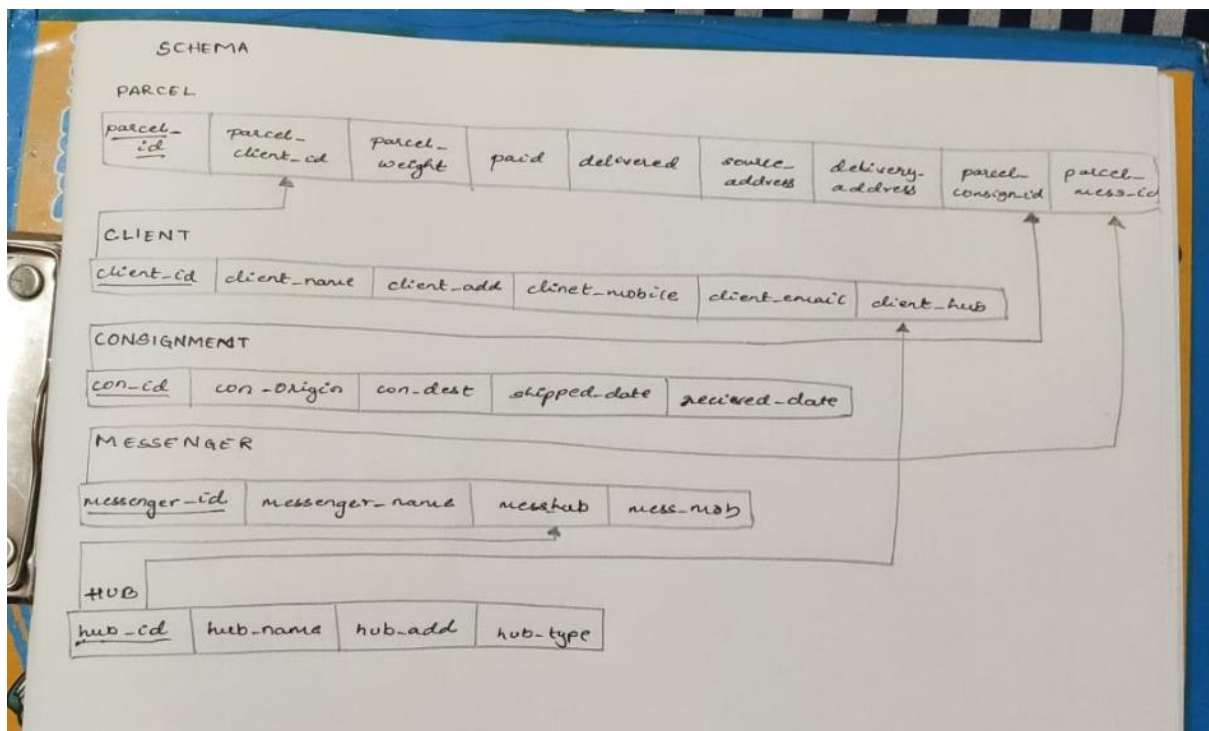 SCHEMA
PARCEL
parcel_ id parcel_ client_id parcel_ weight paid delivered source_ address delivery_ address parcel_ consign_id parcel_ mess_id
CLIENT
client_id client_name client_add clinet_mobile client_email client_hub
CONSIGNMENT
con_id con_origin con_dest shipped_date recieved_date
MESSENGER
messenger_id messenger_name messhub mess_mob
HUB
hub_id hub_name hub_add hub_type